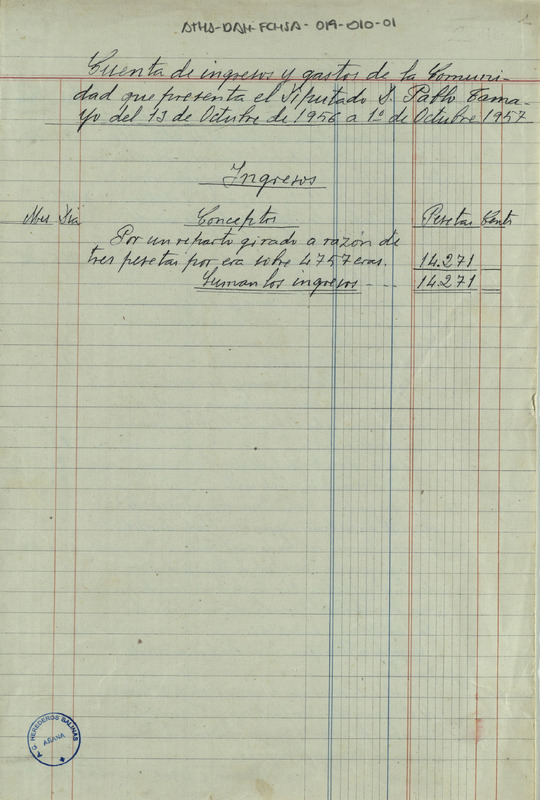 ATHA-DAH-FCHSA-019-010-01
Cuenta de ingresos y gastos de la Comuni-
dad que presenta el Diputado D. Pablo Tama-
yo del 13 de Octubre de 1956 a 1º de Octubre 1957
Ingresos
Mes Dia Conceptos Pesetas Cents
Por un reparto girado a razón de
tres pesetas por era sobre 4757 eras. 14.271
Suman los ingresos - - - 14.271
G. HEREDEROS SALINAS
AÑANA